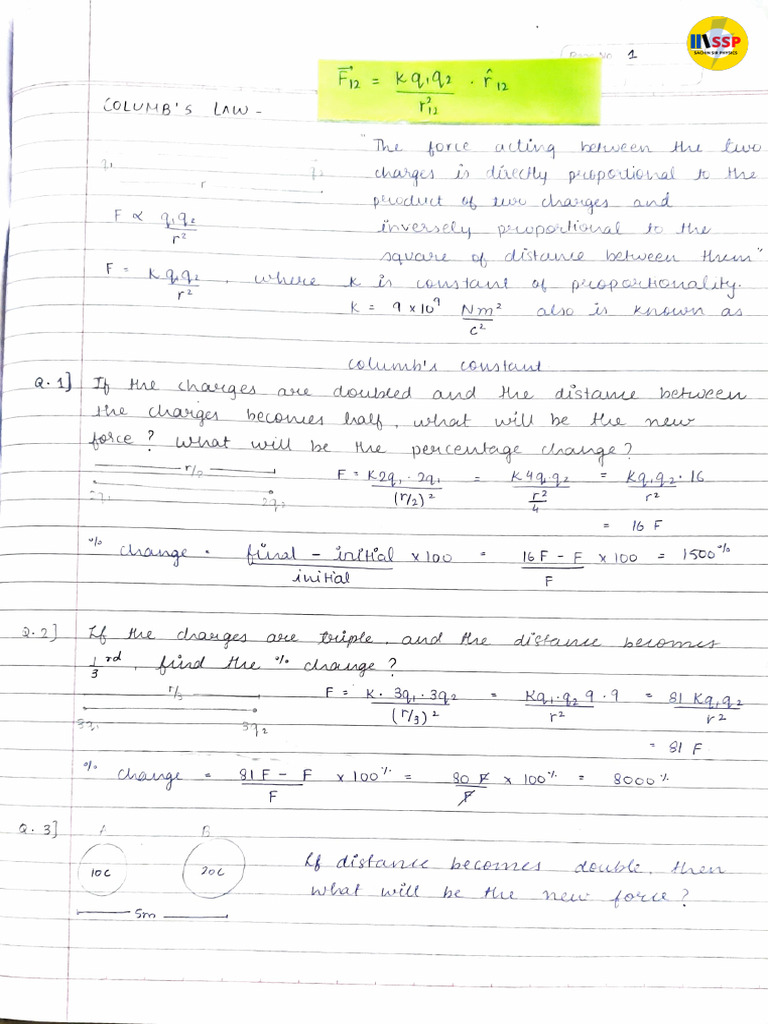 SSP
SACHIN SIR PHYSICS
Page No. 1
F⃗₁₂ = K q₁q₂ / r²₁₂ · r̂₁₂
COLUMB'S LAW -
"The force acting between the two
charges is directly proportional to the
product of two charges and
inversely proportional to the
square of distance between them"
q₁ r q₂
F ∝ q₁q₂ / r²
F = Kq₁q₂ / r² , where K is constant of proportionality.
K = 9 × 10⁹ Nm² / C² also is known as
columb's constant
Q.1] If the charges are doubled and the distance between
the charges becomes half, what will be the new
force? what will be the percentage change?
r/2
2q₁ 2q₂
F = K2q₁ · 2q₁ / (r/2)² = K4q₁q₂ / r²/4 = Kq₁q₂ · 16 / r²
= 16 F
% change = final - initial / initial × 100 = 16F - F / F × 100 = 1500%
Q.2] If the charges are triple, and the distance becomes
1/3 rd, find the % change?
r/3
3q₁ 3q₂
F = K · 3q₁ · 3q₂ / (r/3)² = Kq₁ · q₂ 9 · 9 / r² = 81 Kq₁q₂ / r²
= 81 F
% change = 81F - F / F × 100% = 80 F / F × 100% = 8000%
Q.3] A B
10C 20C
If distance becomes double, then
what will be the new force?
5m